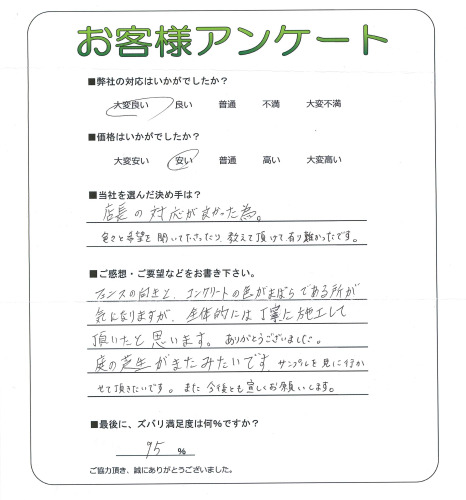 お客様アンケート
■弊社の対応はいかがでしたか？
大変良い 良い 普通 不満 大変不満
■価格はいかがでしたか？
大変安い 安い 普通 高い 大変高い
■当社を選んだ決め手は？
店長の対応がよかった為。
色々と希望を聞いて下さったり、教えて頂けて有り難かったです。
■ご感想・ご要望などをお書き下さい。
フェンスの向きと、コンクリートの色がまばらである所が
気になりますが、全体的には丁寧に施工して
頂いたと思います。ありがとうございました。
庭の芝生がまたみたいです サンプルを見に行か
せて頂きたいです。また今後とも宜しくお願いします。
■最後に、ズバリ満足度は何％ですか？
95 %
ご協力頂き、誠にありがとうございました。